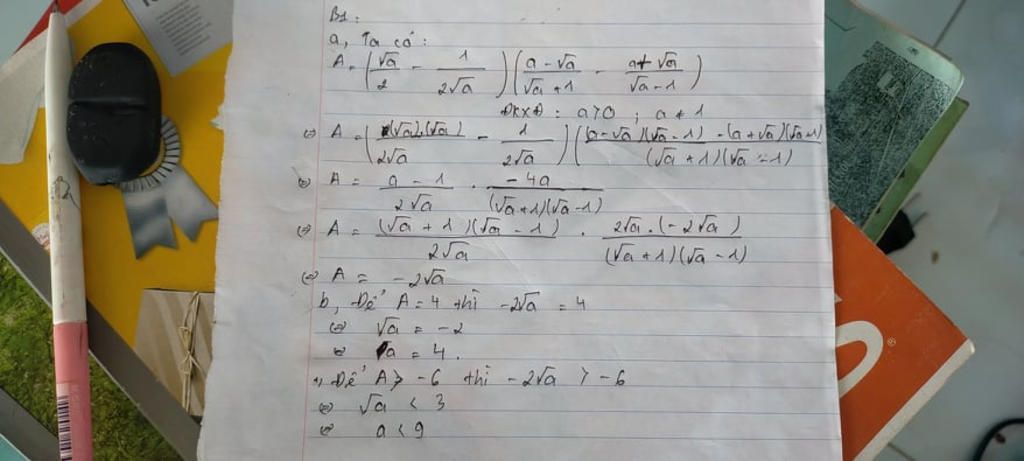 B1:
a, Ta có:
A = (√a/2 - 1/2√a)(a - √a/√a + 1 - a + √a/√a - 1)
ĐKXĐ: a > 0; a ≠ 1
⇔ A = ((√a).(√a)/2√a - 1/2√a)((a - √a)(√a - 1) - (a + √a)(√a + 1)/(√a + 1)(√a - 1))
⇔ A = a - 1/2√a . -4a/(√a + 1)(√a - 1)
⇔ A = (√a + 1)(√a - 1)/2√a . 2√a.(-2√a)/(√a + 1)(√a - 1)
⇔ A = -2√a
b, Để A = 4 thì -2√a = 4
⇔ √a = -2
⇔ a = 4.
Để A > -6 thì -2√a > -6
⇔ √a < 3
⇔ a < 9